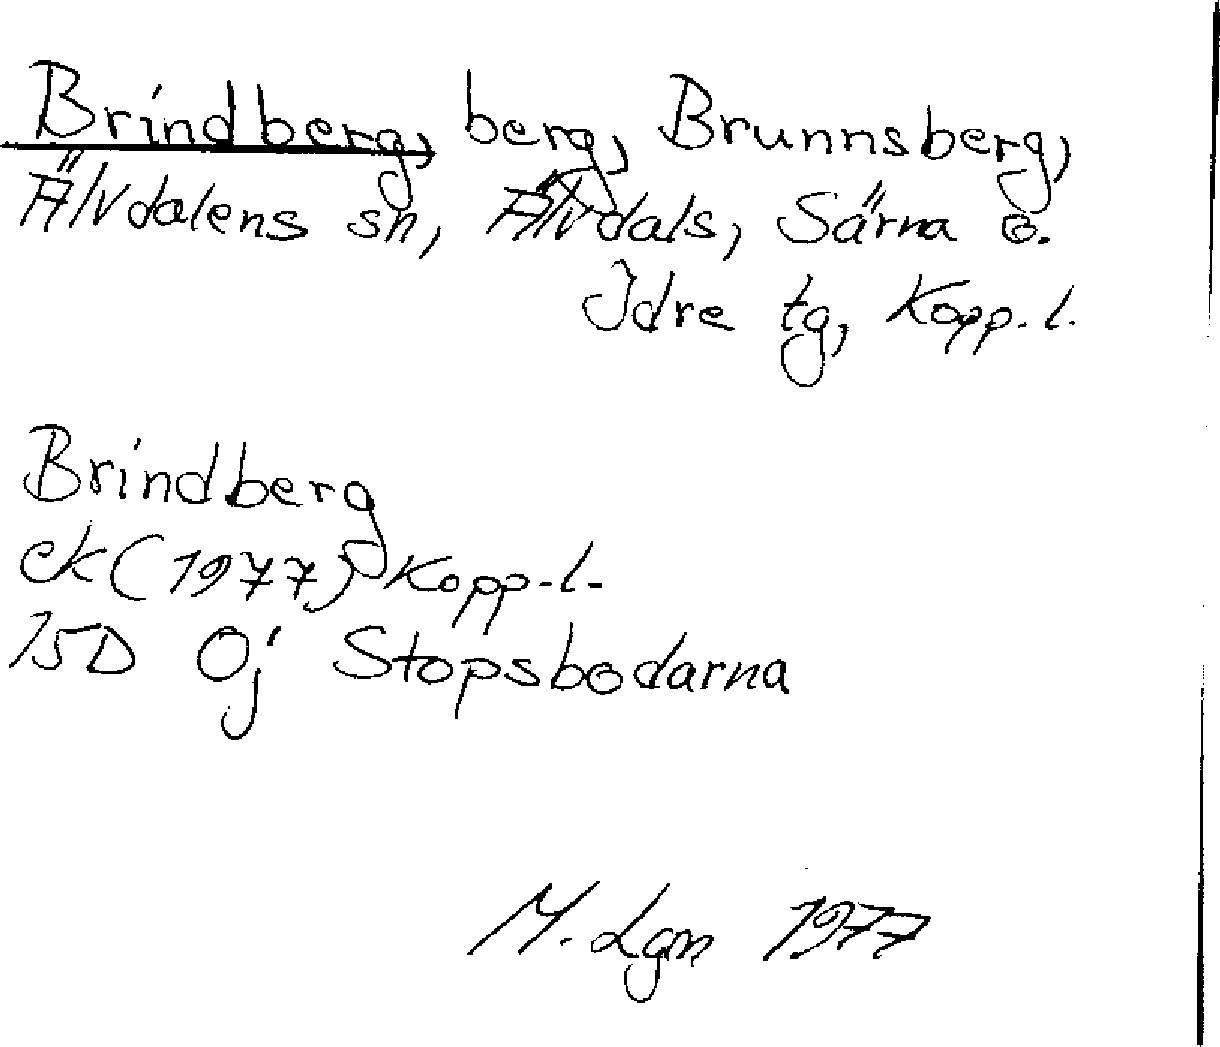 Brindberg, berg, Brunnsberg,
Älvdalens sn, Älvdals, Särna o.
Idre tg, Kopp. l.
Brindberg
ek (1977) Kopp. l.
15D 0j Stopsbodarna
M. Lgm 1977